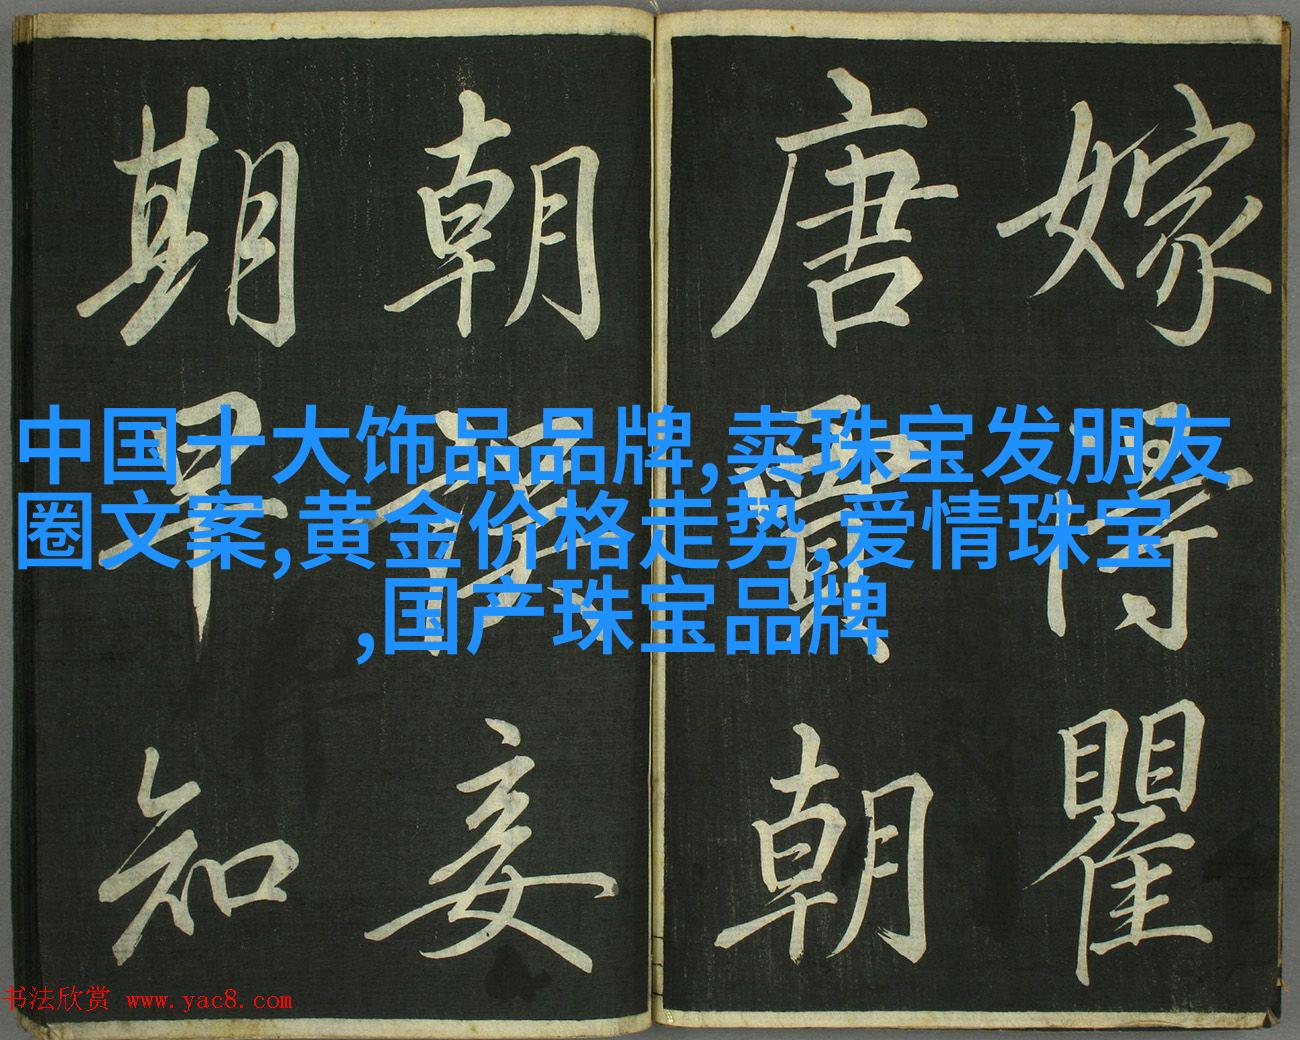 嫁得瞿
唐賈朝
朝妾
期早知
中国十大饰品品牌,卖珠宝发朋友
圈文案,黄金价格走势,爱情珠宝
,国产珠宝品牌
书法欣赏 www.yac8.com